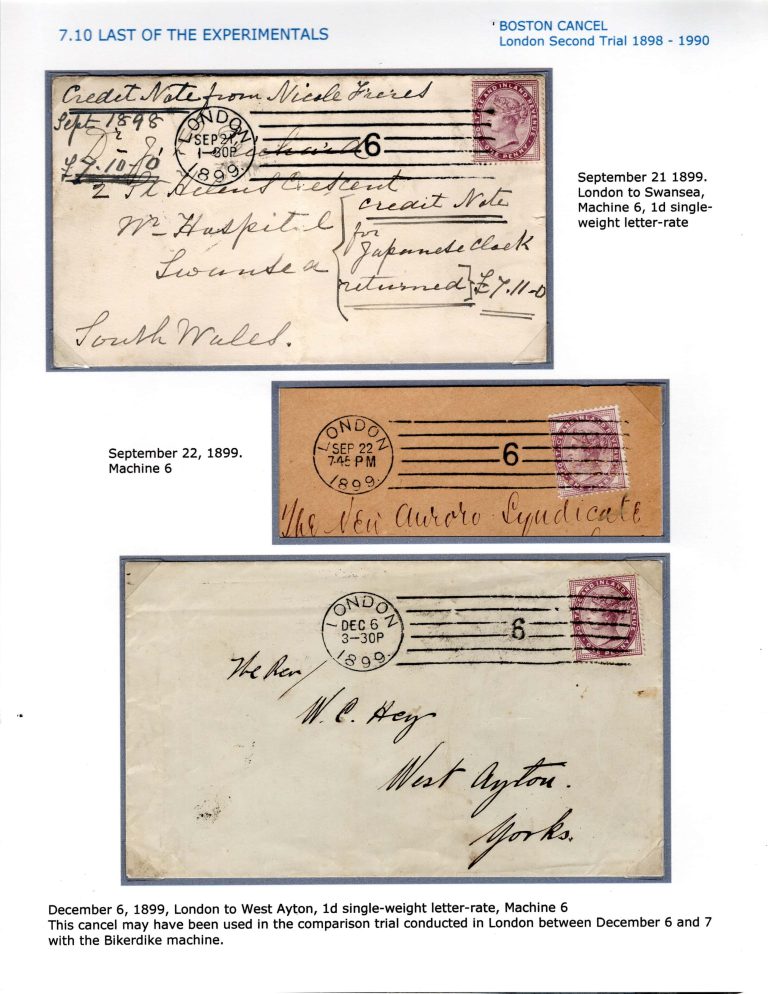 7.10 LAST OF THE EXPERIMENTALS
BOSTON CANCEL
London Second Trial 1898 - 1990
Credit Note from Nicole Frères
Sept 1898
£7.10.0
LONDON
SEP 21
1-30P
1899
6
POSTAGE AND INLAND REVENUE
ONE PENNY
2 St Helens Crescent
Nr Hospital
Swansea
South Wales.
credit Note
for
Japanese Clock
returned
£7.11-0
September 21 1899.
London to Swansea,
Machine 6, 1d single-
weight letter-rate
September 22, 1899.
Machine 6
LONDON
SEP 22
7-45 PM
1899.
6
The New Auroro Syndicate
LONDON
DEC 6
3-30P
1899.
6
The Rev/
W. C. Hey
West Ayton.
Yorks.
December 6, 1899, London to West Ayton, 1d single-weight letter-rate, Machine 6
This cancel may have been used in the comparison trial conducted in London between December 6 and 7
with the Bikerdike machine.